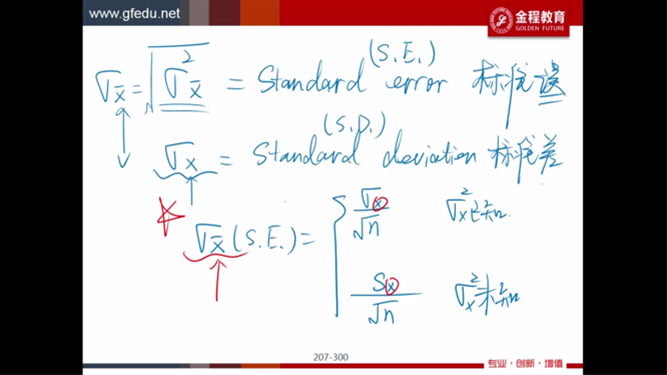 www.gfedu.net
金程教育
GOLDEN FUTURE
σx̄ = √σ²x̄ = Standard error (S.E.) 标准误
σx = Standard deviation (S.D.) 标准差
σx̄ (S.E.) = { σx/√n σ²x已知
Sx/√n σ²x未知
207-300
专业·创新·增值